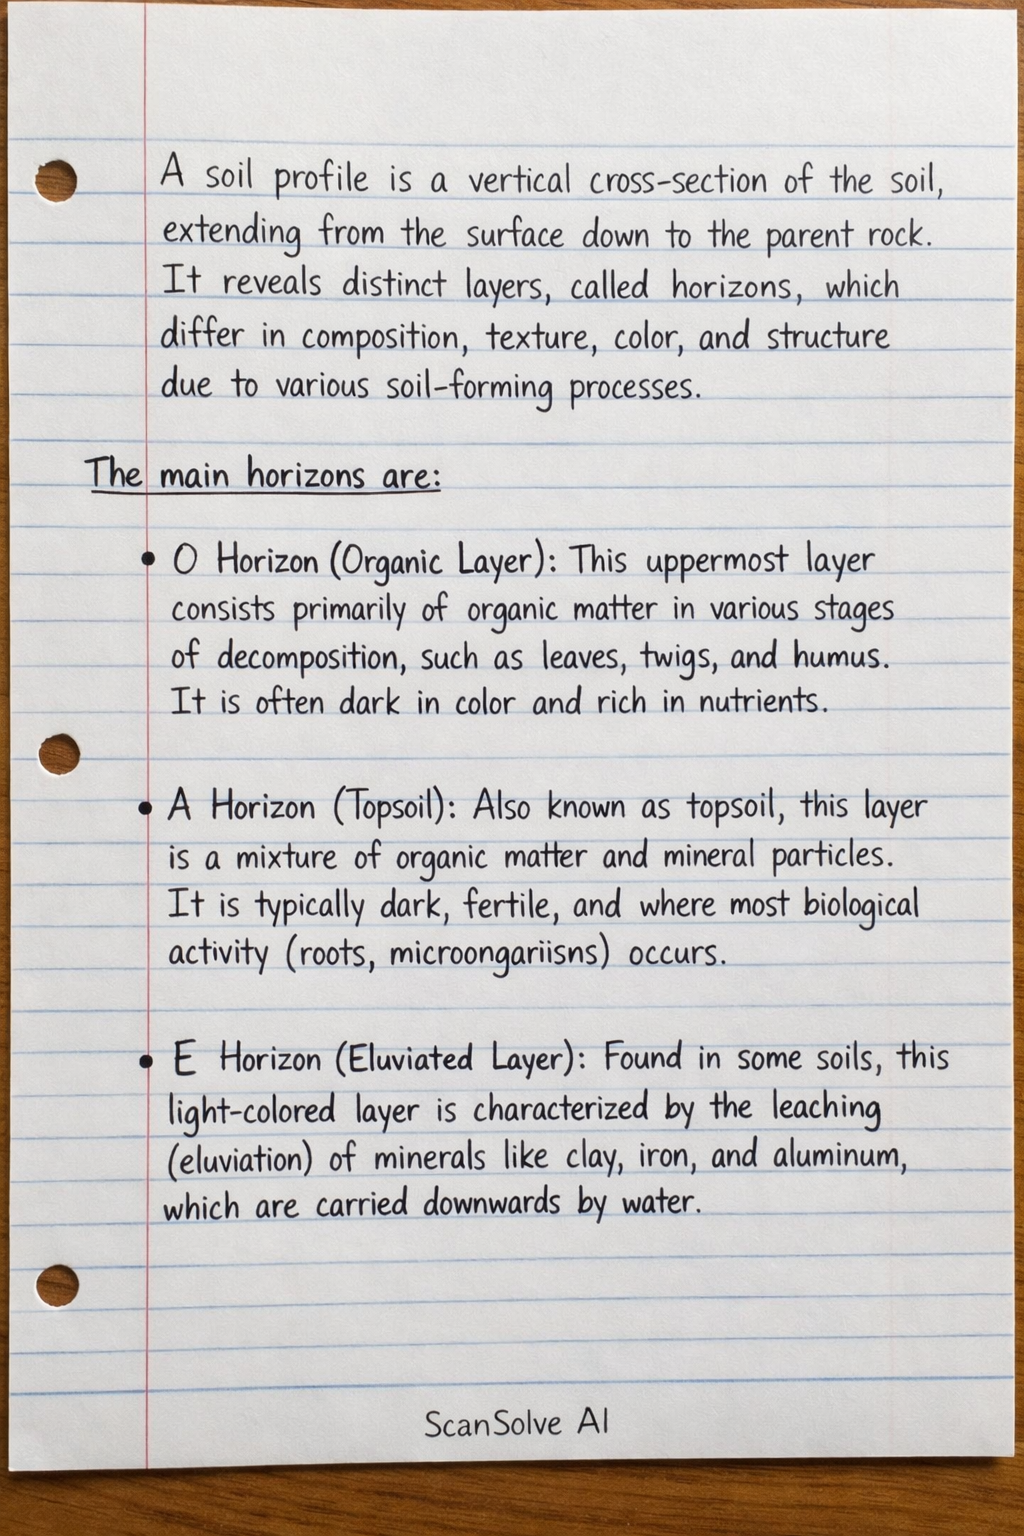 A soil profile is a vertical cross-section of the soil,
extending from the surface down to the parent rock.
It reveals distinct layers, called horizons, which
differ in composition, texture, color, and structure
due to various soil-forming processes.
The main horizons are:
• O Horizon (Organic Layer): This uppermost layer
consists primarily of organic matter in various stages
of decomposition, such as leaves, twigs, and humus.
It is often dark in color and rich in nutrients.
• A Horizon (Topsoil): Also known as topsoil, this layer
is a mixture of organic matter and mineral particles.
It is typically dark, fertile, and where most biological
activity (roots, microongariisns) occurs.
• E Horizon (Eluviated Layer): Found in some soils, this
light-colored layer is characterized by the leaching
(eluviation) of minerals like clay, iron, and aluminum,
which are carried downwards by water.
ScanSolve AI